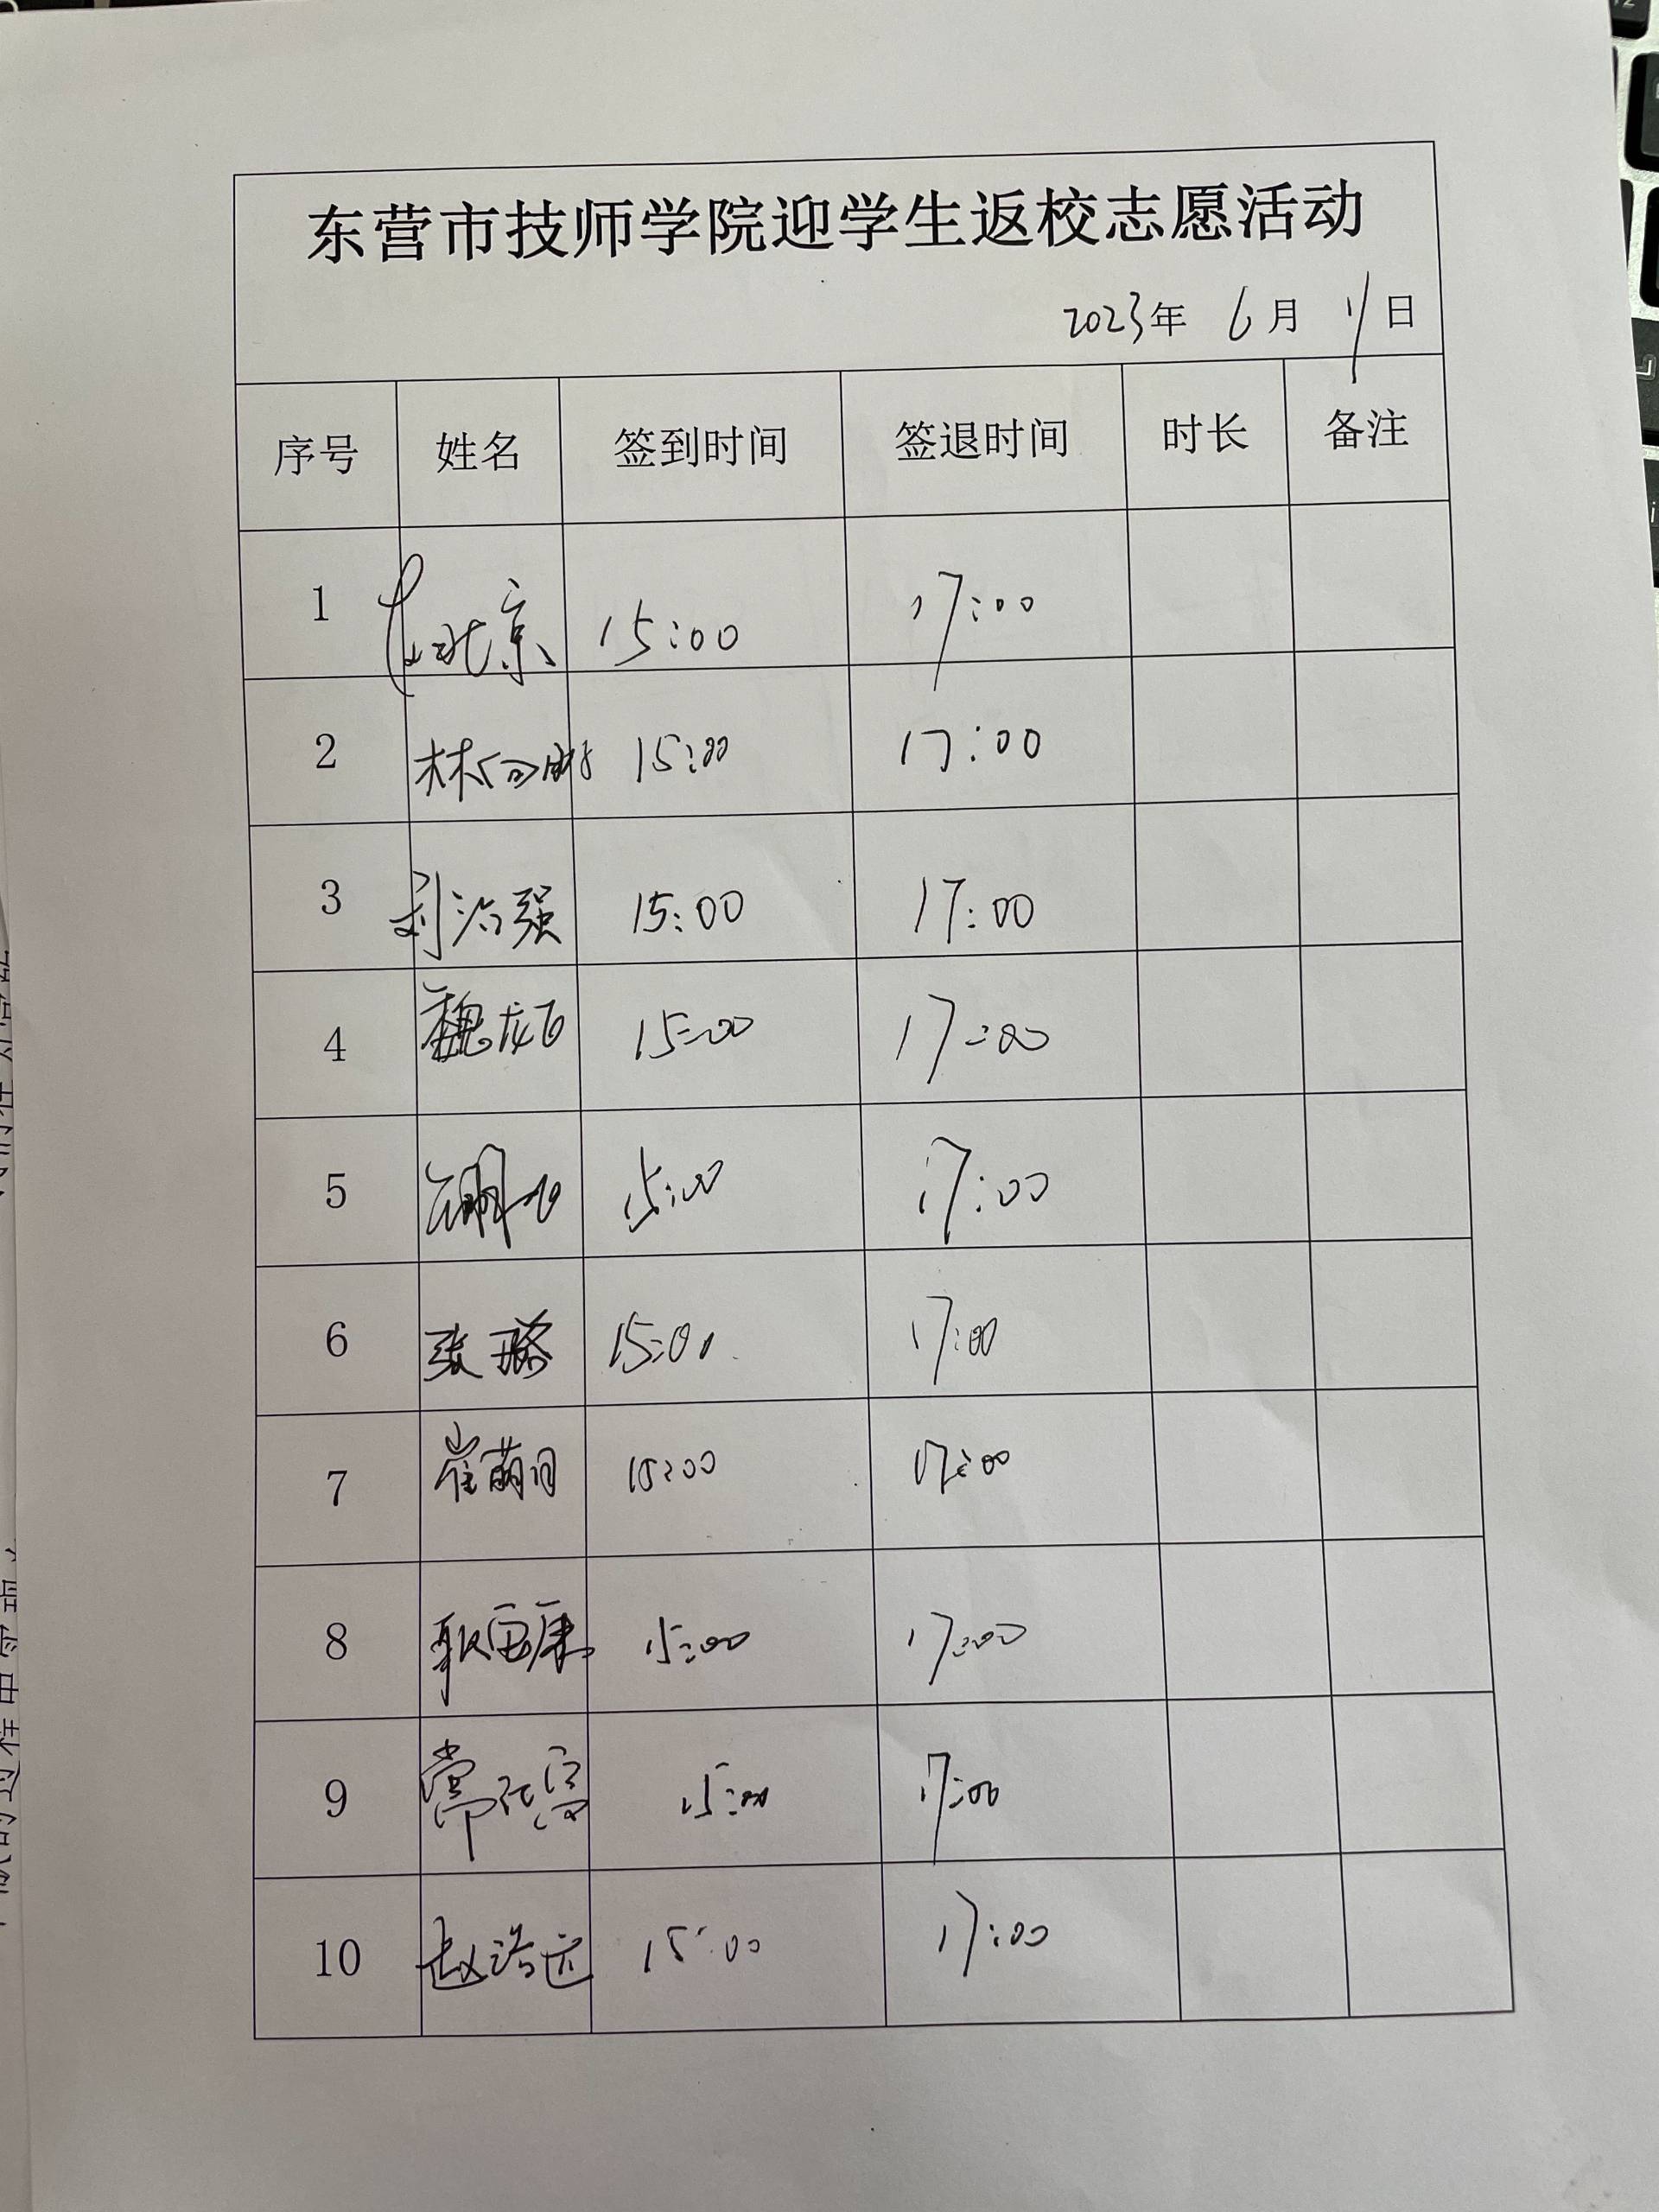 东营市技师学院迎学生返校志愿活动
2023年 6月 11日
序号 姓名 签到时间 签退时间 时长 备注
1 北京 15:00 17:00
2 林 15:00 17:00
3 刘治强 15:00 17:00
4 魏龙飞 15:00 17:00
5 15:00 17:00
6 张璐 15:00 17:00
7 崔萌月 15:00 17:00
8 耿 康 15:00 17:00
9 常 15:00 17:00
10 赵浩运 15:00 17:00